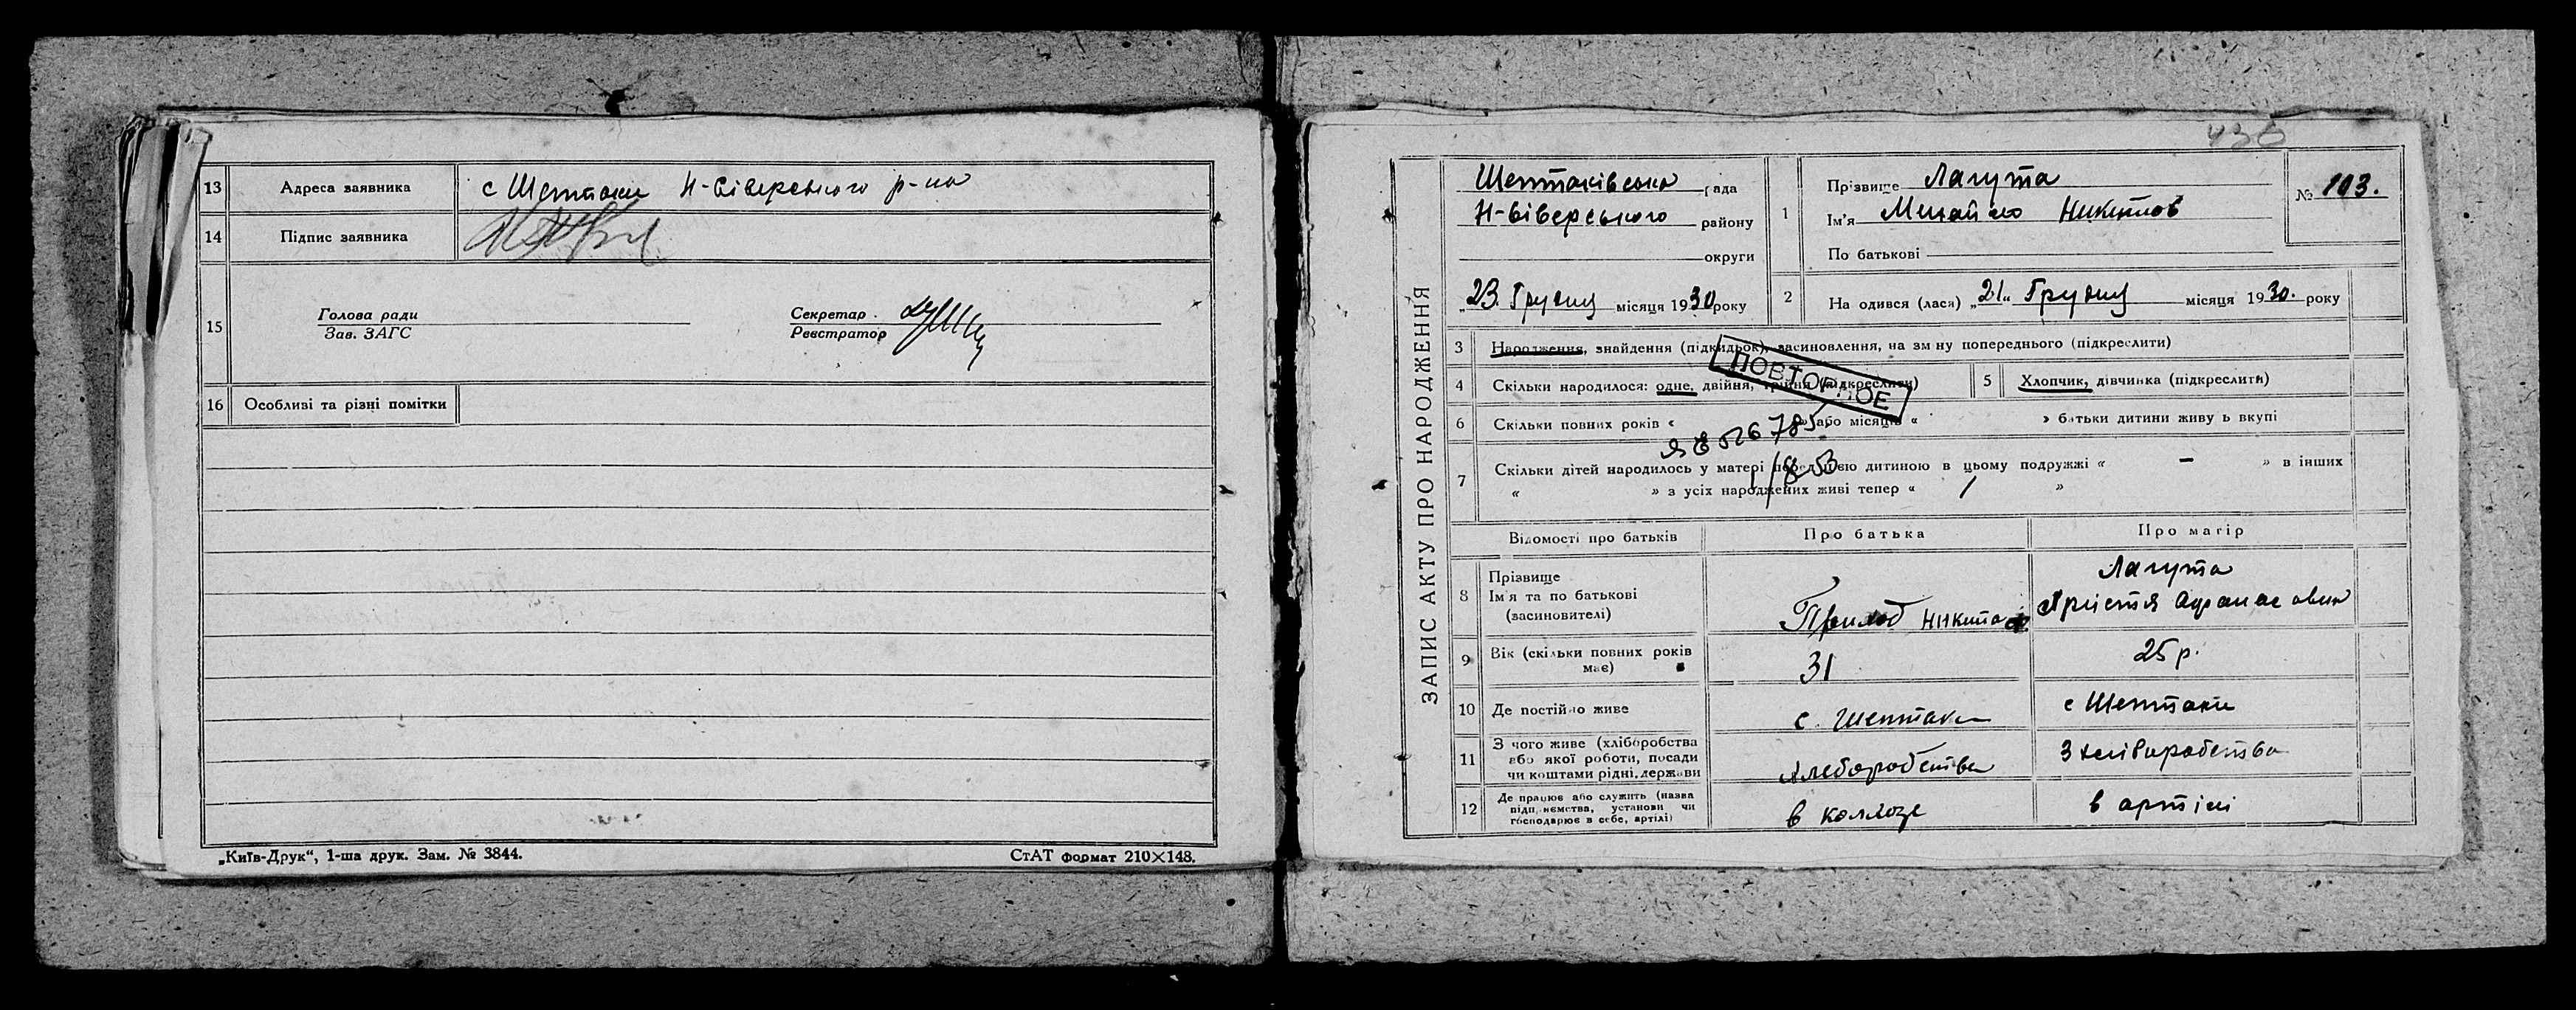 13 Адреса заявника с Шептаки Н-Сіверського р-на
14 Підпис заявника
15 Голова ради
Зав. ЗАГС
Секретар
Реєстратор
16 Особливі та різні помітки
„Київ-Друк“, 1-ша друк. Зам. № 3844. СтАТ формат 210×148.
436
ЗАПИС АКТУ ПРО НАРОДЖЕННЯ
Шептаківсько рада
Н-Сіверського району
округи
„23. Грудня місяця 1930 року
1 Прізвище Лагута
Ім'я Михайло Никитов
По батькові
№ 103.
2 На одився (лася) „21“ Грудня місяця 1930. року
3 Народження, знайдення (підкидьок), засиновлення, на зм ну попереднього (підкреслити)
ПОВТОРНОЕ
4 Скільки народилося: одне, двійня, трійня (підкреслити) 5 Хлопчик, дівчинка (підкреслити)
6 Скільки повних років « » або місяців « » батьки дитини живу ь вкупі
526785
7 Скільки дітей народилось у матері перед цією дитиною в цьому подружжі « – » в інших
« » з усіх народжених живі тепер « / »
Відомості про батьків Про батька Про матір
8 Прізвище
Ім'я та по батькові
(засиновителі)
Никита
Лагута
Христя Афанасовна
9 Вік (скільки повних років має) 31 25 р.
10 Де постійно живе с. Шептаки с Шептаки
11 З чого живе (хліборобства
або якої роботи, посади
чи коштами рідні, держави
Хлеборобства
З хліборобства
12 Де працює або служить (назва
підприємства, установи чи
господарює в себе, артілі)
в колхозе
в артілі